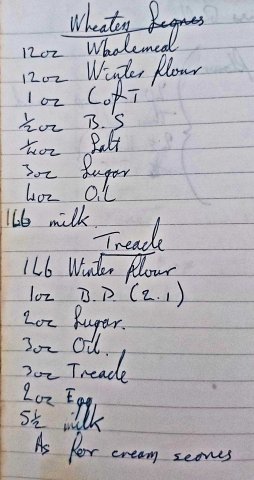 Wheaten Scones
12oz Wholemeal
12oz Winter flour
1 oz C of T
½oz B.S
¼oz Salt
3oz Sugar
4oz Oil
1Lb milk.
Treacle
1Lb Winter flour
1oz B.P. (2.1)
2oz Sugar.
3oz Oil.
3oz Treacle
2oz Egg
5½ milk
As for cream scones